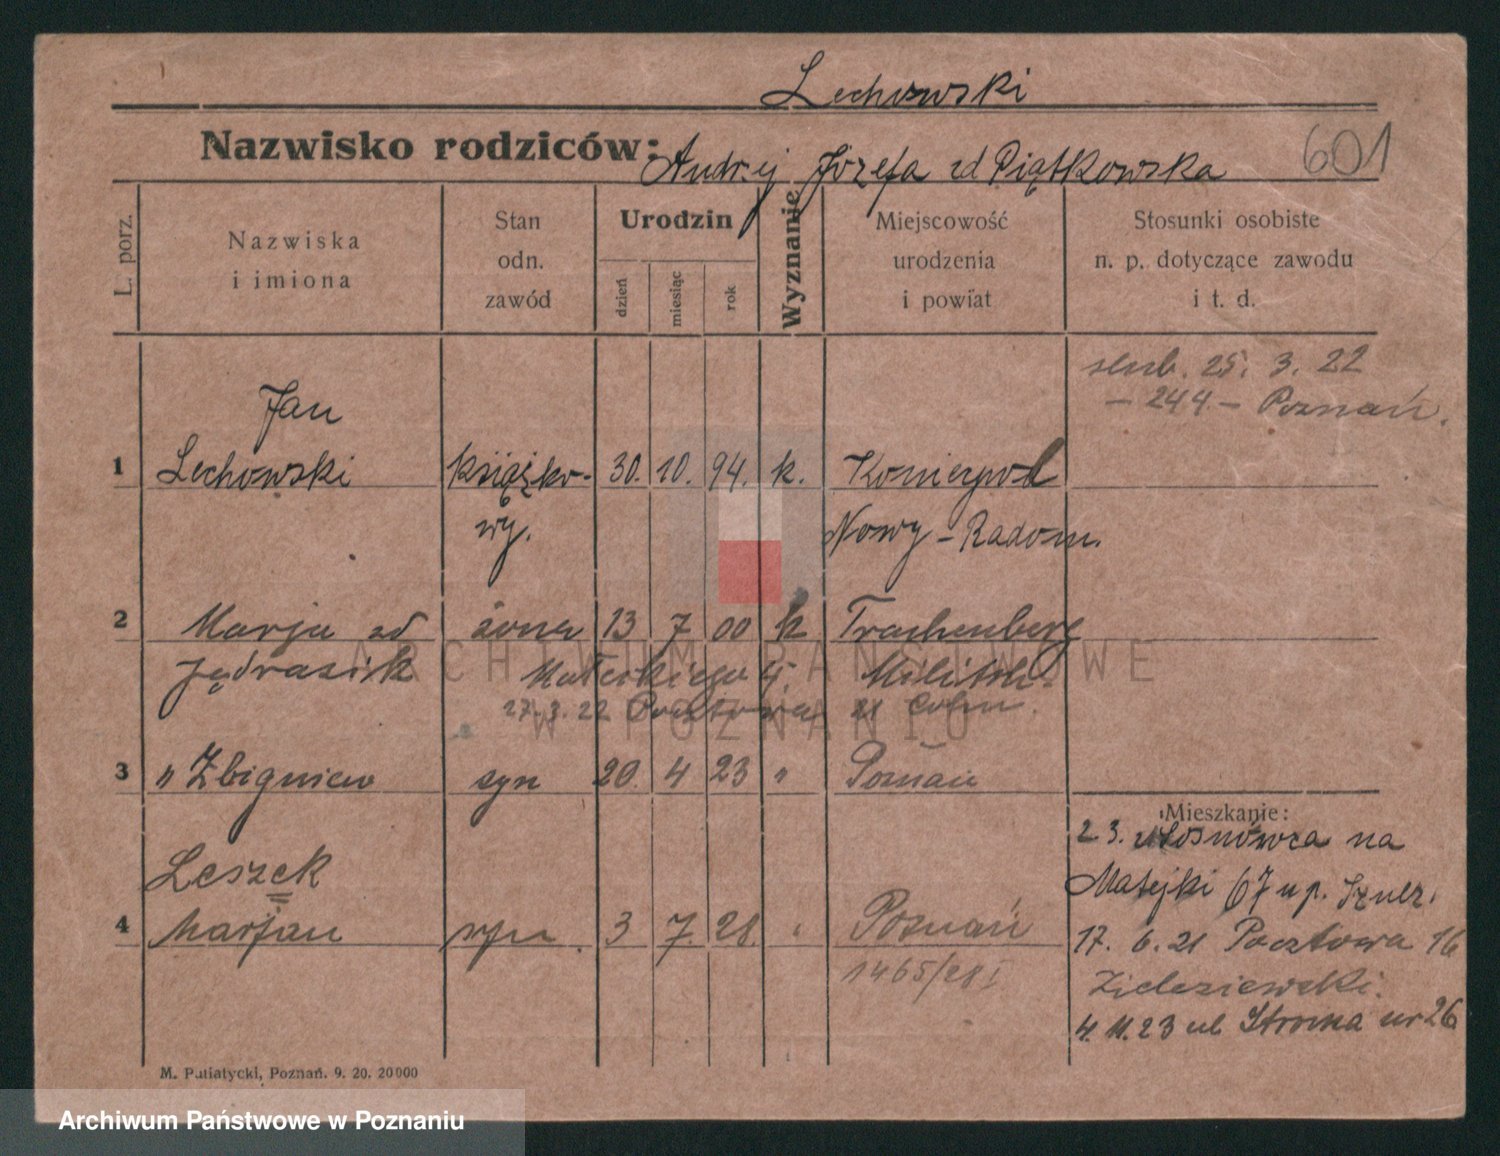 Lechowski
Nazwisko rodziców: Andrzej Józefa zd Piątkowska 601
L. porz.
Nazwiska
i imiona
Stan
odn.
zawód
Urodzin
dzień
miesiąc
rok
Wyznanie
Miejscowość
urodzenia
i powiat
Stosunki osobiste
n. p. dotyczące zawodu
i t. d.
ślub. 25. 3. 22
- 244 - Poznań.
Jan
1 Lechowski książko- 30. 10. 94. k. Koniecpol
wy. Nowy-Radom.
2 Marja zd żona 13 7 00 k Trachenberg
Jędrasik Małeckiego Militsch.
27. 3. 22 Pocztowa 21
3 " Zbigniew syn 20. 4 23 " Poznań
Leszek
4 Marjan syn. 3 7. 28. Poznań
1465/28 I
Mieszkanie:
23. na
Matejki 67 u p.
17. 6. 21 Pocztowa 16
4. 11. 23 ul Stroma nr 26
M. Putiatycki, Poznań. 9. 20. 20000
ARCHIWUM PAŃSTWOWE
W POZNANIU
Archiwum Państwowe w Poznaniu